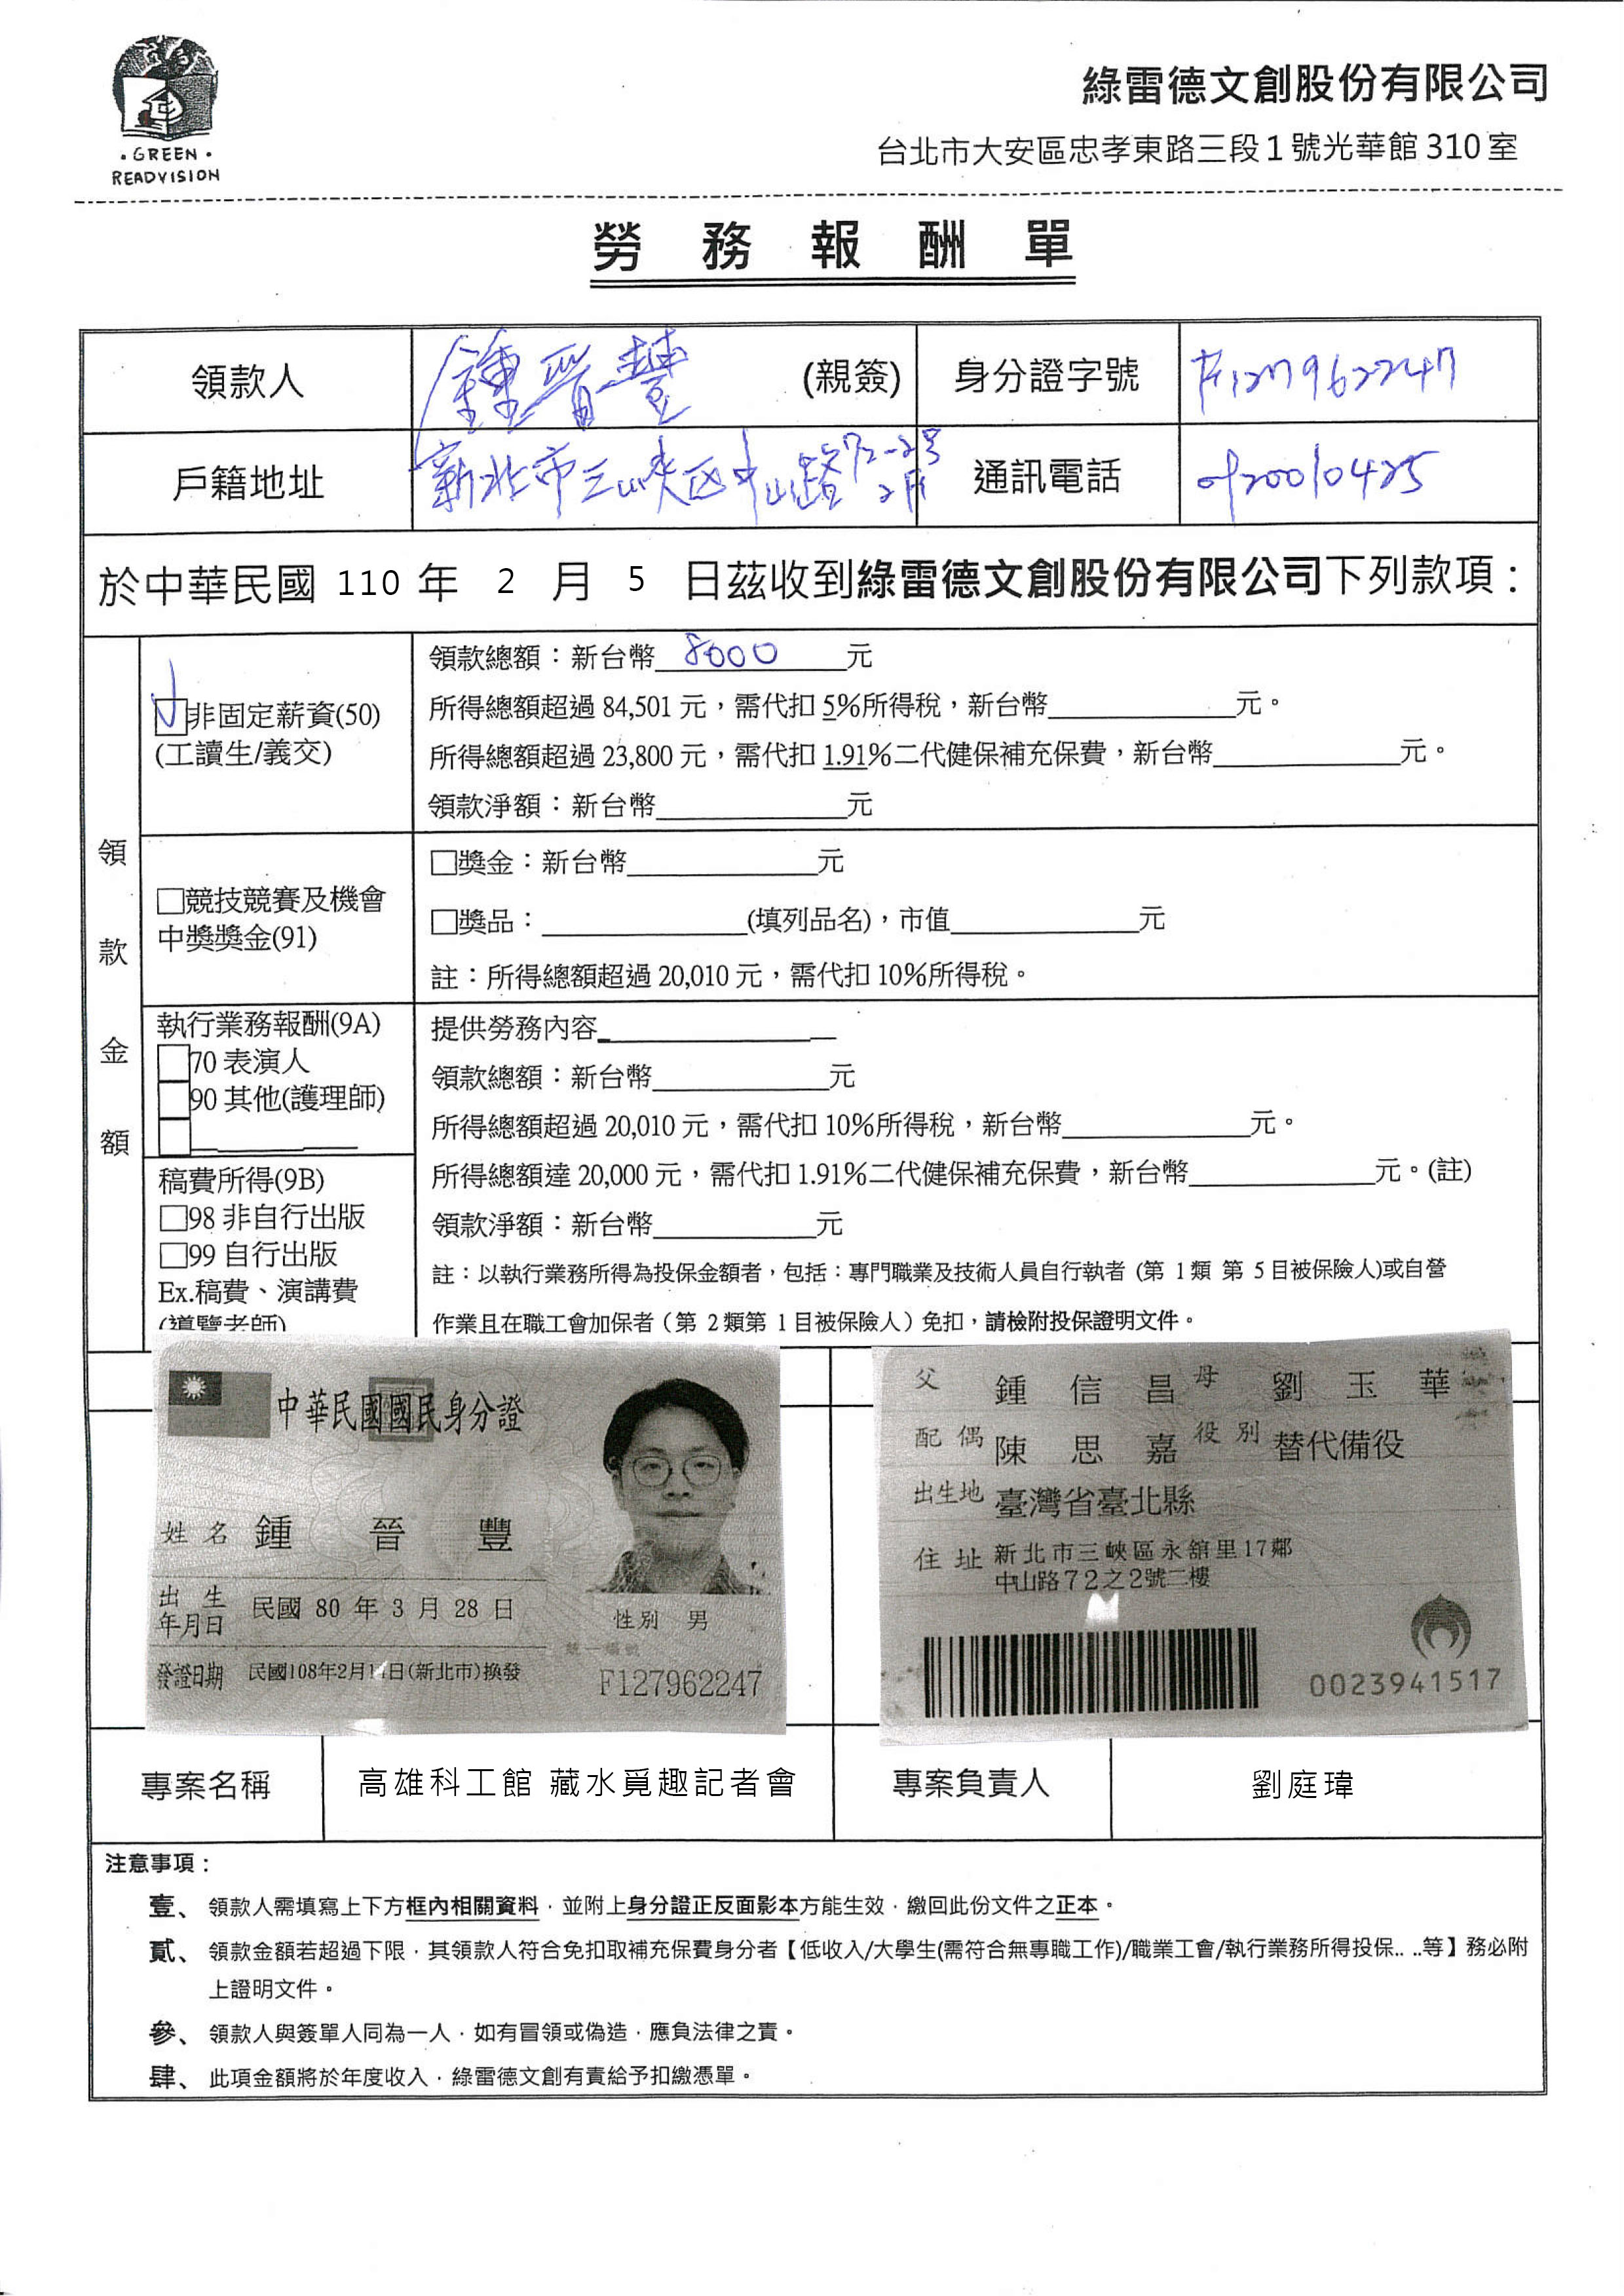 綠雷德文創股份有限公司
台北市大安區忠孝東路三段1號光華館310室
• GREEN •
READVISION
勞務報酬單
領款人 鍾晉豐 (親簽) 身分證字號 F127962247
戶籍地址 新北市三峽區中山路72-2號2F 通訊電話 0920010425
於中華民國 110 年 2 月 5 日茲收到綠雷德文創股份有限公司下列款項：
領款金額
□非固定薪資(50)
(工讀生/義交)
領款總額：新台幣 8000 元
所得總額超過 84,501 元，需代扣 5%所得稅，新台幣 元。
所得總額超過 23,800 元，需代扣 1.91%二代健保補充保費，新台幣 元。
領款淨額：新台幣 元
□競技競賽及機會
中獎獎金(91)
□獎金：新台幣 元
□獎品： (填列品名)，市值 元
註：所得總額超過 20,010 元，需代扣 10%所得稅。
執行業務報酬(9A)
□70 表演人
□90 其他(護理師)
□
稿費所得(9B)
□98 非自行出版
□99 自行出版
Ex.稿費、演講費
(導覽老師)
提供勞務內容
領款總額：新台幣 元
所得總額超過 20,010 元，需代扣 10%所得稅，新台幣 元。
所得總額達 20,000 元，需代扣 1.91%二代健保補充保費，新台幣 元。(註)
領款淨額：新台幣 元
註：以執行業務所得為投保金額者，包括：專門職業及技術人員自行執者 (第 1類 第 5目被保險人)或自營
作業且在職工會加保者（第 2類第 1目被保險人）免扣，請檢附投保證明文件。
中華民國國民身分證
姓名 鍾晉豐
出生年月日 民國 80 年 3 月 28 日
性別 男
統一編號
發證日期 民國108年2月14日(新北市)換發
F127962247
父 鍾信昌 母 劉玉華
配偶 陳思嘉 役別 替代備役
出生地 臺灣省臺北縣
住址 新北市三峽區永舘里17鄰
中山路72之2號二樓
0023941517
專案名稱 高雄科工館 藏水覓趣記者會 專案負責人 劉庭瑋
注意事項：
壹、領款人需填寫上下方框內相關資料，並附上身分證正反面影本方能生效，繳回此份文件之正本。
貳、領款金額若超過下限，其領款人符合免扣取補充保費身分者【低收入/大學生(需符合無專職工作)/職業工會/執行業務所得投保.. ..等】務必附
上證明文件。
參、領款人與簽單人同為一人，如有冒領或偽造，應負法律之責。
肆、此項金額將於年度收入，綠雷德文創有責給予扣繳憑單。